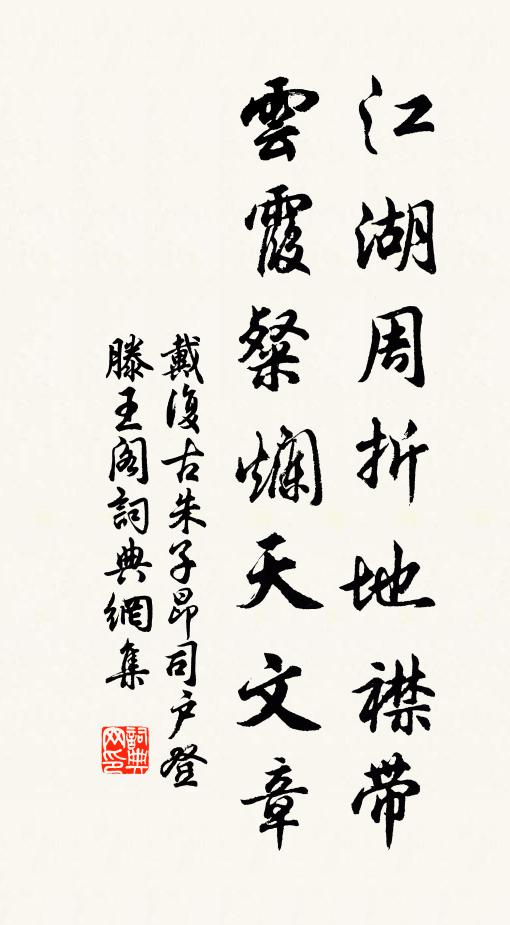 江湖周折地襟带
雲霞粲爛天文章
戴復古朱子昂司户登
滕王阁詞典網集
詞典网印